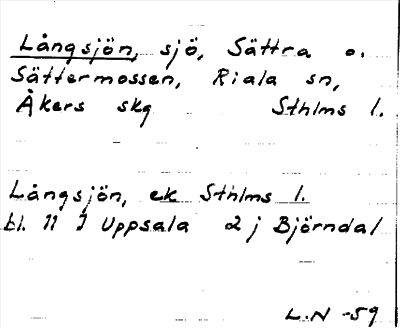 Långsjön, sjö, Sättra o.
Sättermossen, Riala sn,
Åkers skg Sthlms l.
Långsjön, ek Sthlms l.
bl. 11 I Uppsala 2 j Björndal
L.N -59